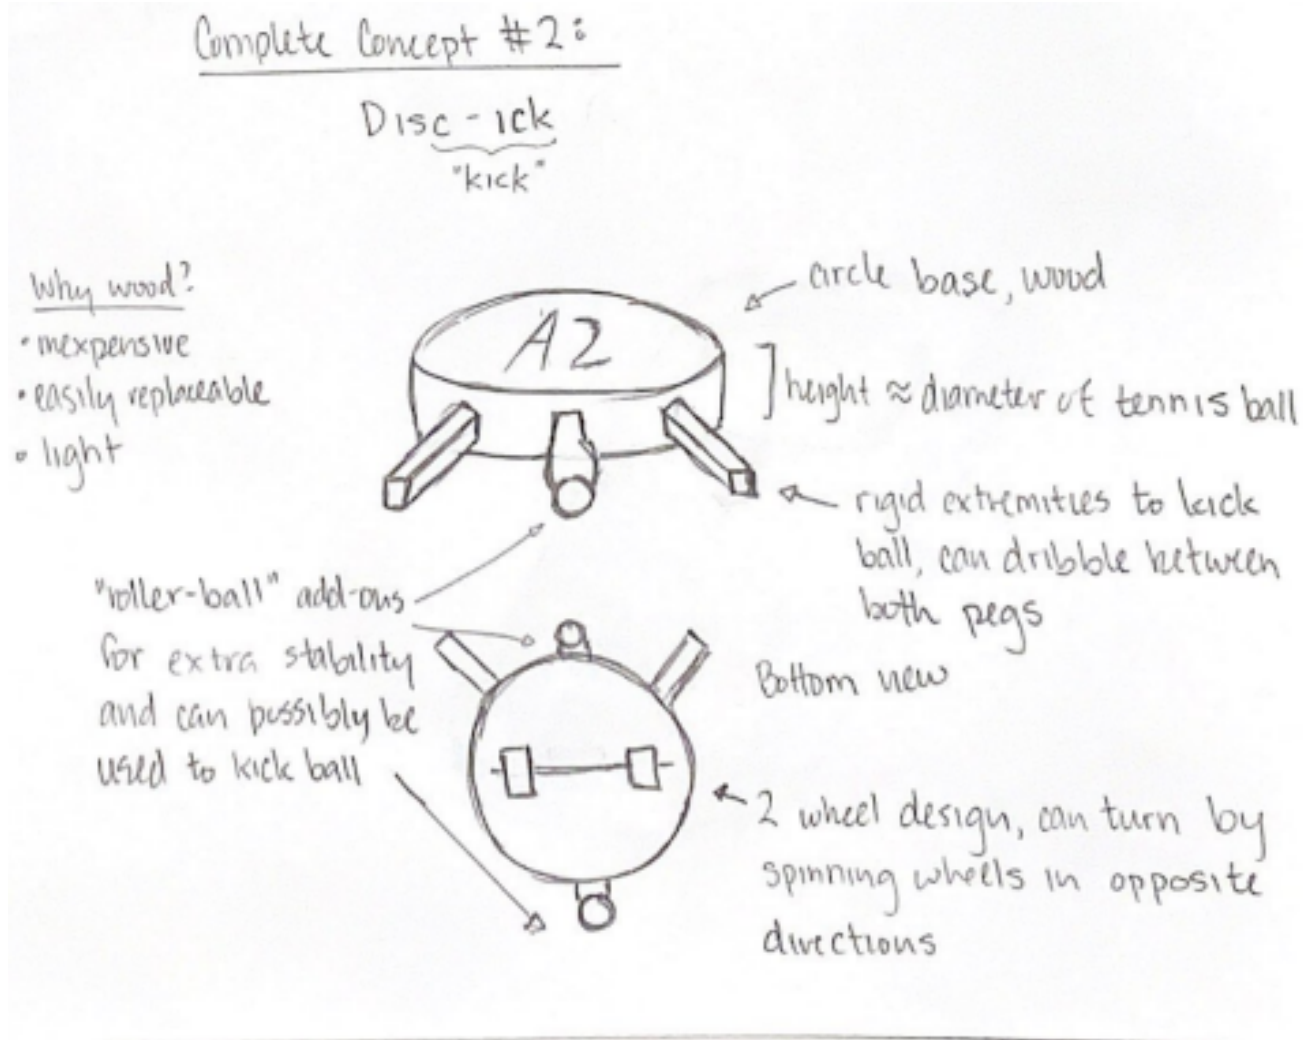 Complete Concept #2:
Disc-ick
"kick"
Why wood?
• inexpensive
• easily replaceable
• light
A2
circle base, wood
height ≈ diameter of tennis ball
rigid extremities to kick
ball, can dribble between
both pegs
"roller-ball" add-ons
for extra stability
and can possibly be
used to kick ball
Bottom view
2 wheel design, can turn by
spinning wheels in opposite
directions